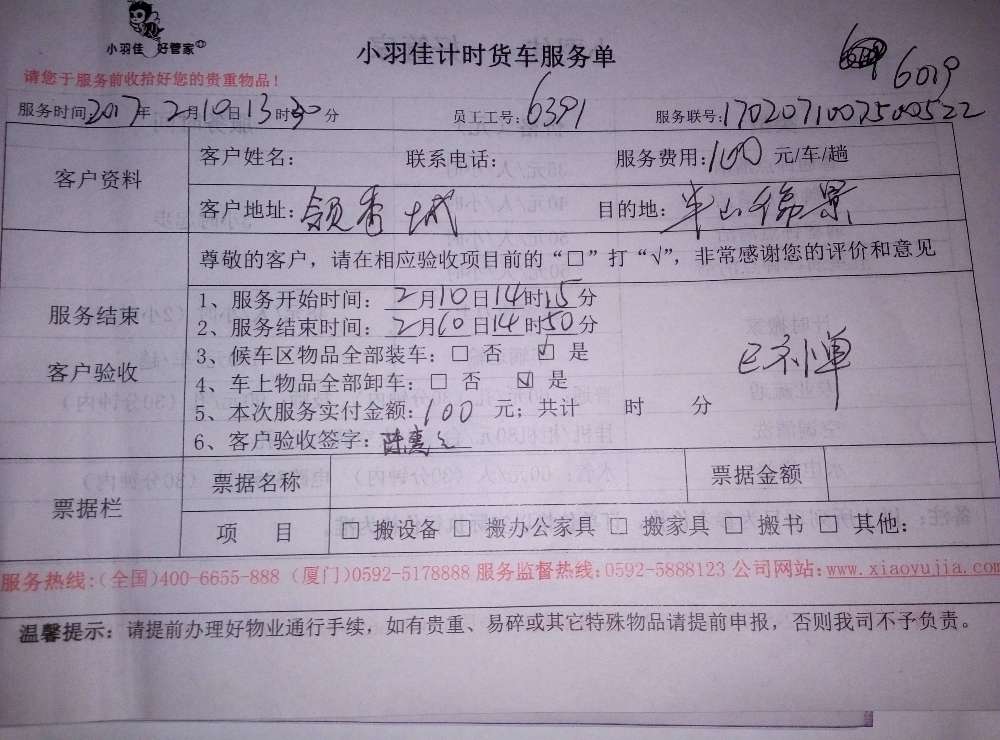 小羽佳 好管家
小羽佳计时货车服务单
6019
请您于服务前收拾好您的贵重物品！
服务时间:2017年2月10日13时30分 员工工号:6391 服务联号:1702071007500522
客户资料
客户姓名： 联系电话： 服务费用:100元/车/趟
客户地址:领秀城 目的地:半山锦景
服务结束
客户验收
尊敬的客户，请在相应验收项目前的“□”打“√”，非常感谢您的评价和意见
1、服务开始时间：2月10日14时15分
2、服务结束时间：2月10日14时50分
3、候车区物品全部装车：□ 否 ☑ 是
4、车上物品全部卸车：□ 否 ☑ 是
5、本次服务实付金额:100元；共计 时 分
6、客户验收签字:陈惠
票据栏
票据名称 票据金额
项 目 □ 搬设备 □ 搬办公家具 □ 搬家具 □ 搬书 □ 其他：
服务热线:(全国)400-6655-888 (厦门)0592-5178888 服务监督热线:0592-5888123 公司网站:www.xiaoyujia.com
温馨提示：请提前办理好物业通行手续，如有贵重、易碎或其它特殊物品请提前申报，否则我司不予负责。